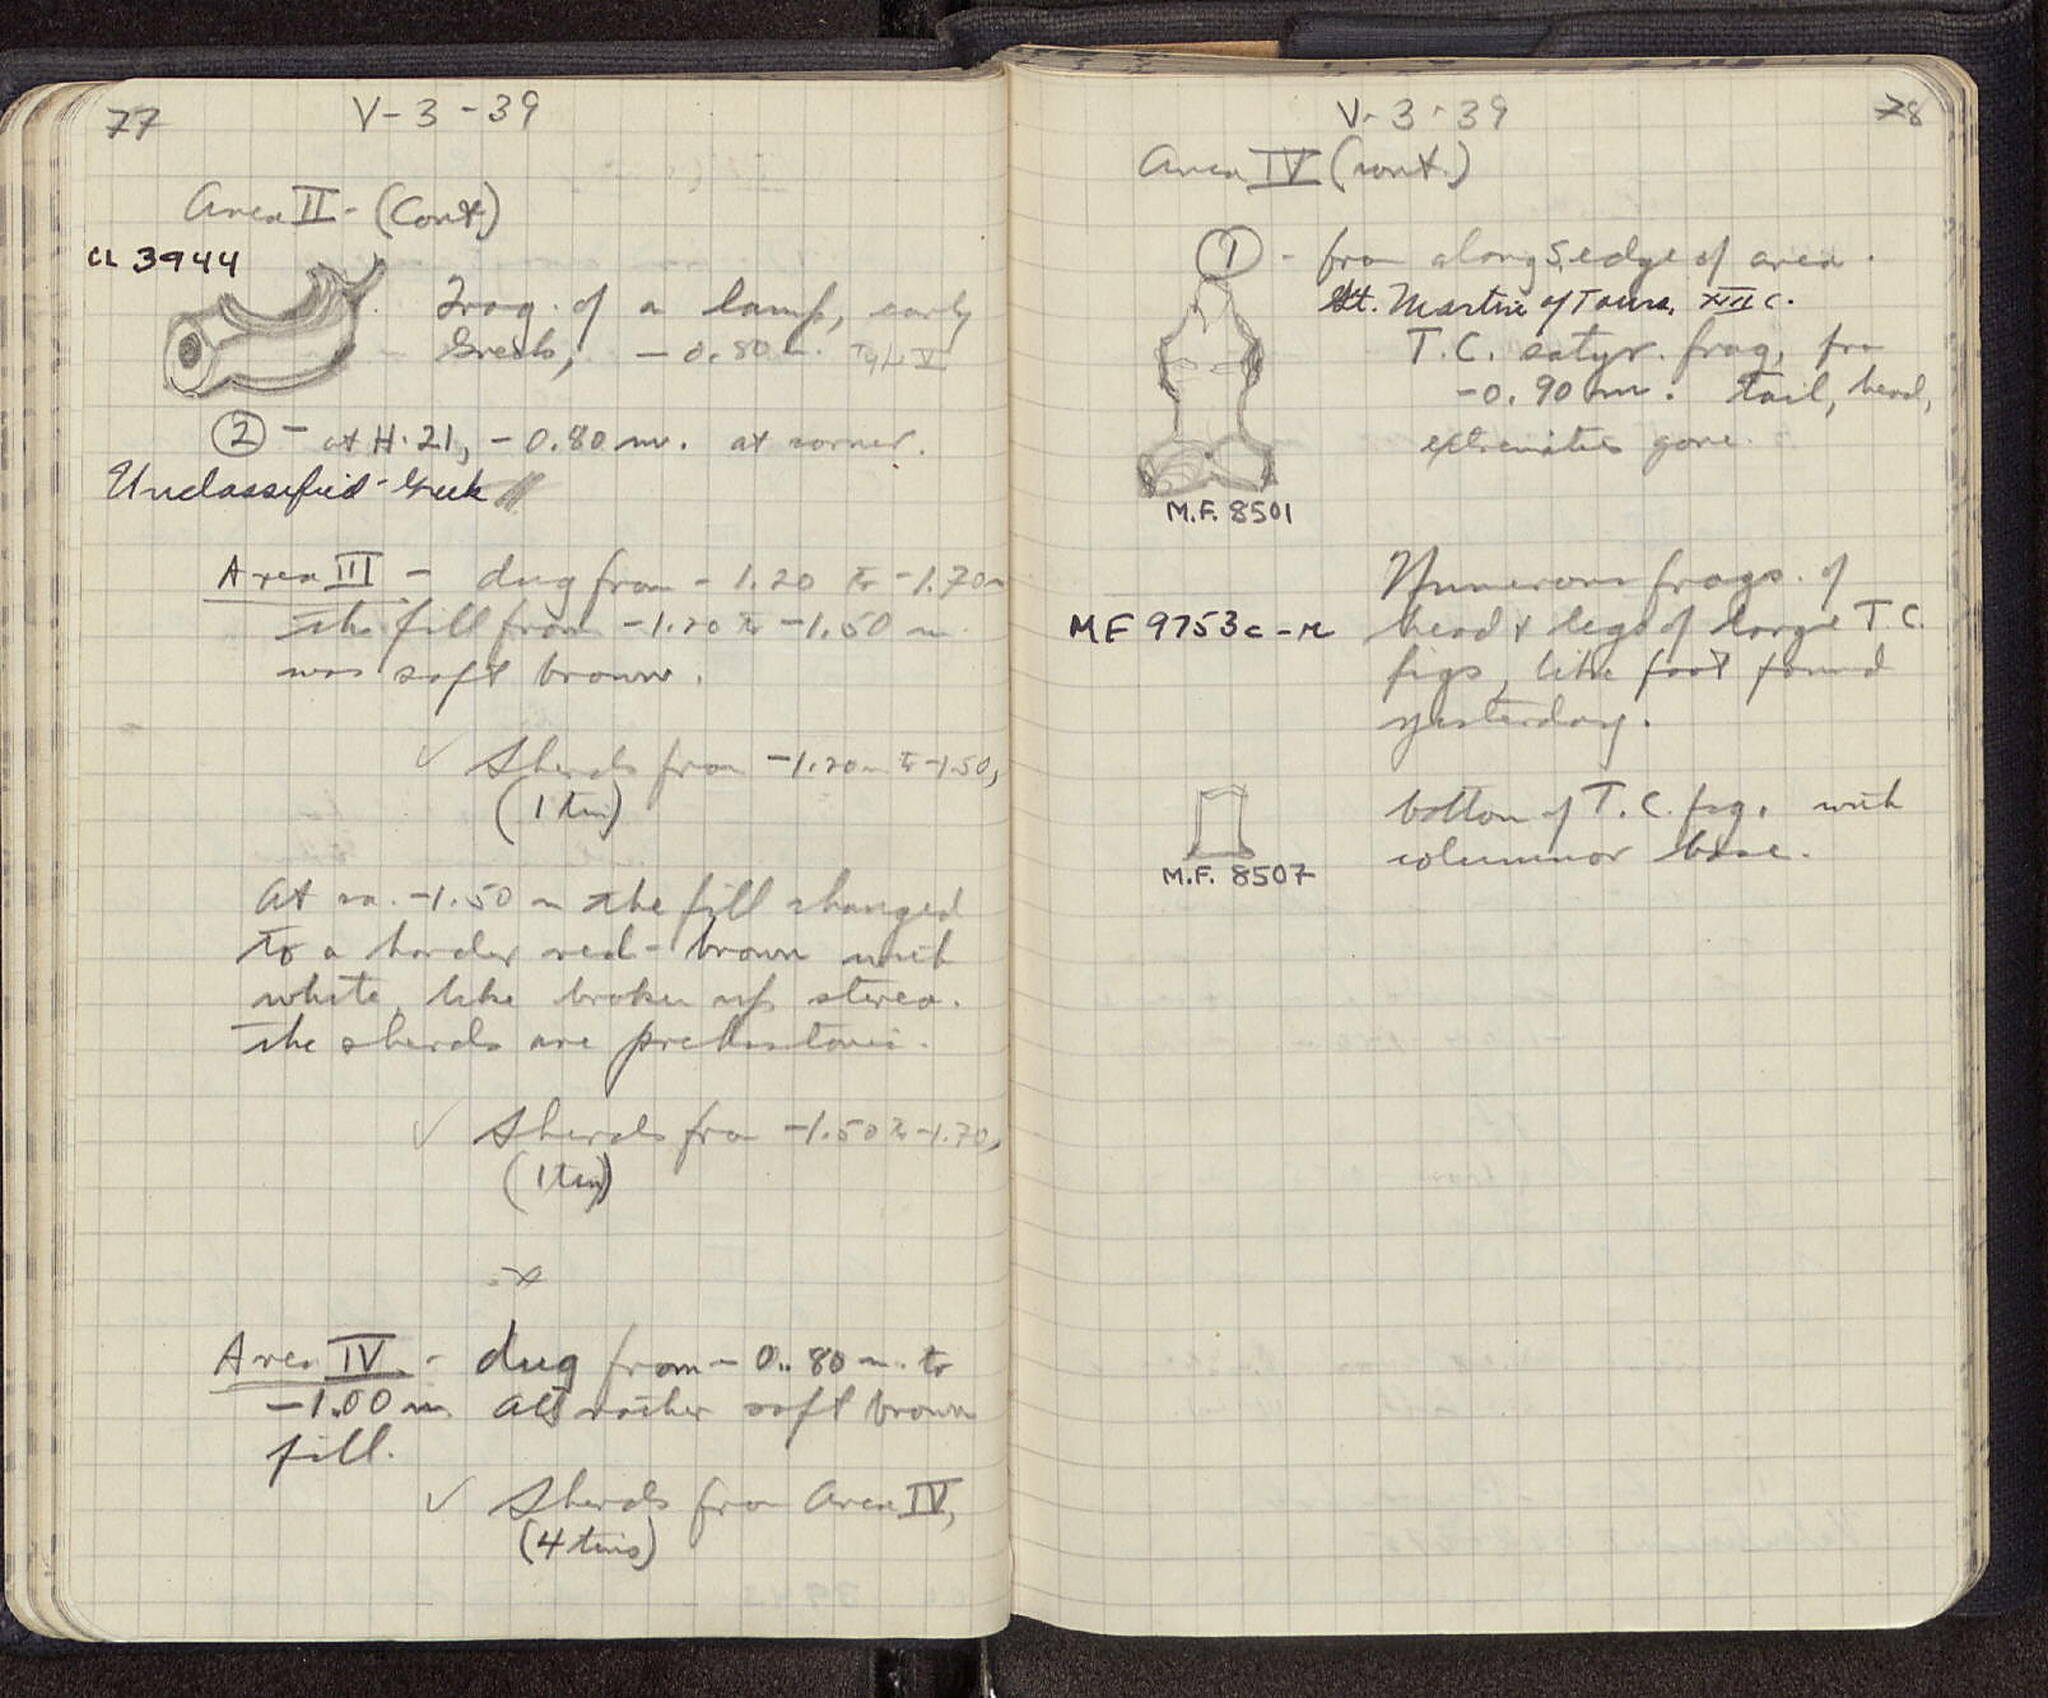 77
V-3-39
Area II - (Cont.)
CL 3944
Frag. of a lamp, early
Greek, -0.80 m. Type V
② - at H-21, -0.80 m. at corner.
Unclassified - Greek
Area III - dug from -1.20 to -1.70 m
The fill from -1.20 to -1.50 m
was soft brown.
✓ Sherds from -1.20 m to -1.50,
(1 tin)
At ca. -1.50 m the fill changed
to a harder red-brown with
white, like broken up stereo.
The sherds are prehistoric.
✓ Sherds from -1.50 to -1.70,
(1 tin)
x
Area IV - dug from -0.80 m. to
-1.00 m. All rather soft brown
fill.
✓ Sherds from Area IV,
(4 tins)
78
V-3-39
Area IV (cont.)
① - from along S. edge of area.
St. Martin of Tours, XIII c.
T.C. satyr. frag, fro
-0.90 m. tail, head,
extremities gone.
M.F. 8501
Numerous frags. of
MF 9753c-r head & legs of large T.C.
figs, like foot found
yesterday.
bottom of T.C. fig. with
columnar base.
M.F. 8507